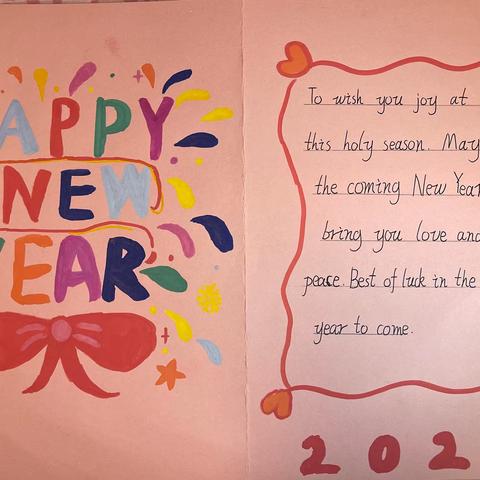 APPY
NEW
YEAR
To wish you joy at
this holy season. May
the coming New Year
bring you love and
peace. Best of luck in the
year to come.
202